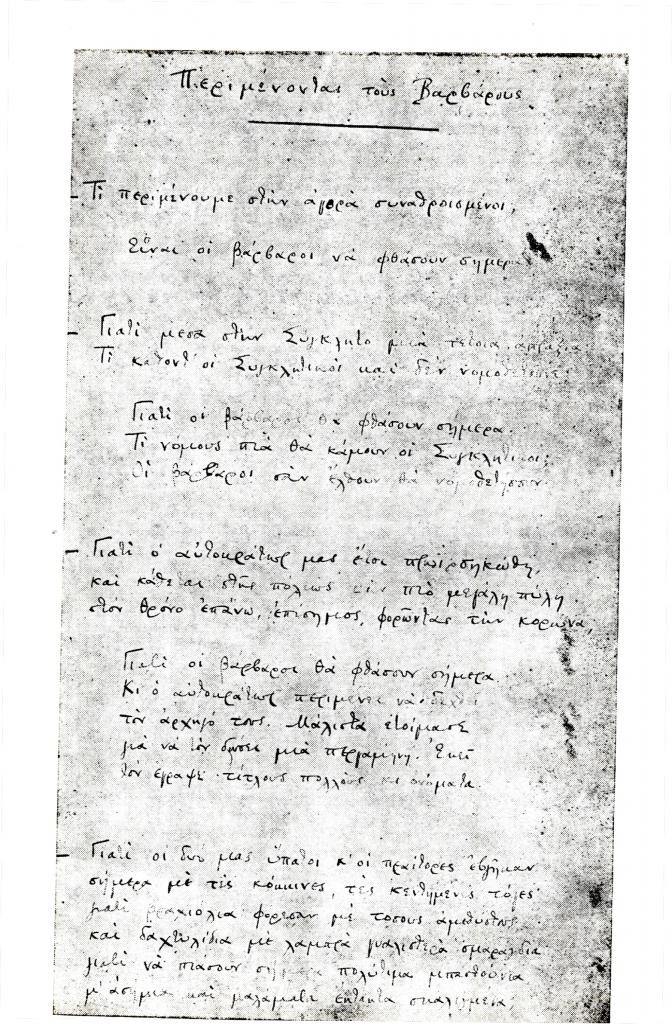 Περιμένοντας τοὺς Βαρβάρους.
– Τί περιμένουμε στὴν ἀγορὰ συναθροισμένοι;
Εἶναι οἱ βάρβαροι νὰ φθάσουν σήμερα
– Γιατὶ μέσα στὴν Σύγκλητο μιὰ τέτοια ἀπραξία
Τί κάθοντ' οἱ Συγκλητικοὶ καὶ δὲν νομοθετοῦνε
Γιατὶ οἱ βάρβαροι θὰ φθάσουν σήμερα.
Τί νόμους πιὰ θὰ κάμουν οἱ Συγκλητικοί;
Οἱ βάρβαροι σὰν ἔλθουν θὰ νομοθετήσουν
– Γιατὶ ὁ αὐτοκράτωρ μας ἔτσι πρωῒ σηκώθη,
καὶ κάθεται στῆς πόλεως τὴν πιὸ μεγάλη πύλη
στὸν θρόνο ἐπάνω, ἐπίσημος, φορῶντας τὴν κορώνα,
Γιατὶ οἱ βάρβαροι θὰ φθάσουν σήμερα.
Κι ὁ αὐτοκράτωρ περιμένει νὰ δεχθεῖ
τὸν ἀρχηγό τους. Μάλιστα ἑτοίμασε
γιὰ νὰ τὸν δώσει μιὰ περγαμηνή. Ἐκεῖ
τὸν ἔγραψε τίτλους πολλοὺς κι ὀνόματα.
– Γιατὶ οἱ δυό μας ὕπατοι κ' οἱ πραίτορες ἐβγῆκαν
σήμερα μὲ τὲς κόκκινες, τὲς κεντημένες τόγες
γιατὶ βραχιόλια φόρεσαν μὲ τόσους ἀμεθύστους
καὶ δαχτυλίδια μὲ λαμπρὰ γυαλιστερὰ σμαράγδια
γιατὶ νὰ πιάσουν σήμερα πολύτιμα μπαστούνια
μ' ἀσήμια καὶ μαλάματα ἔκτακτα σκαλισμένα